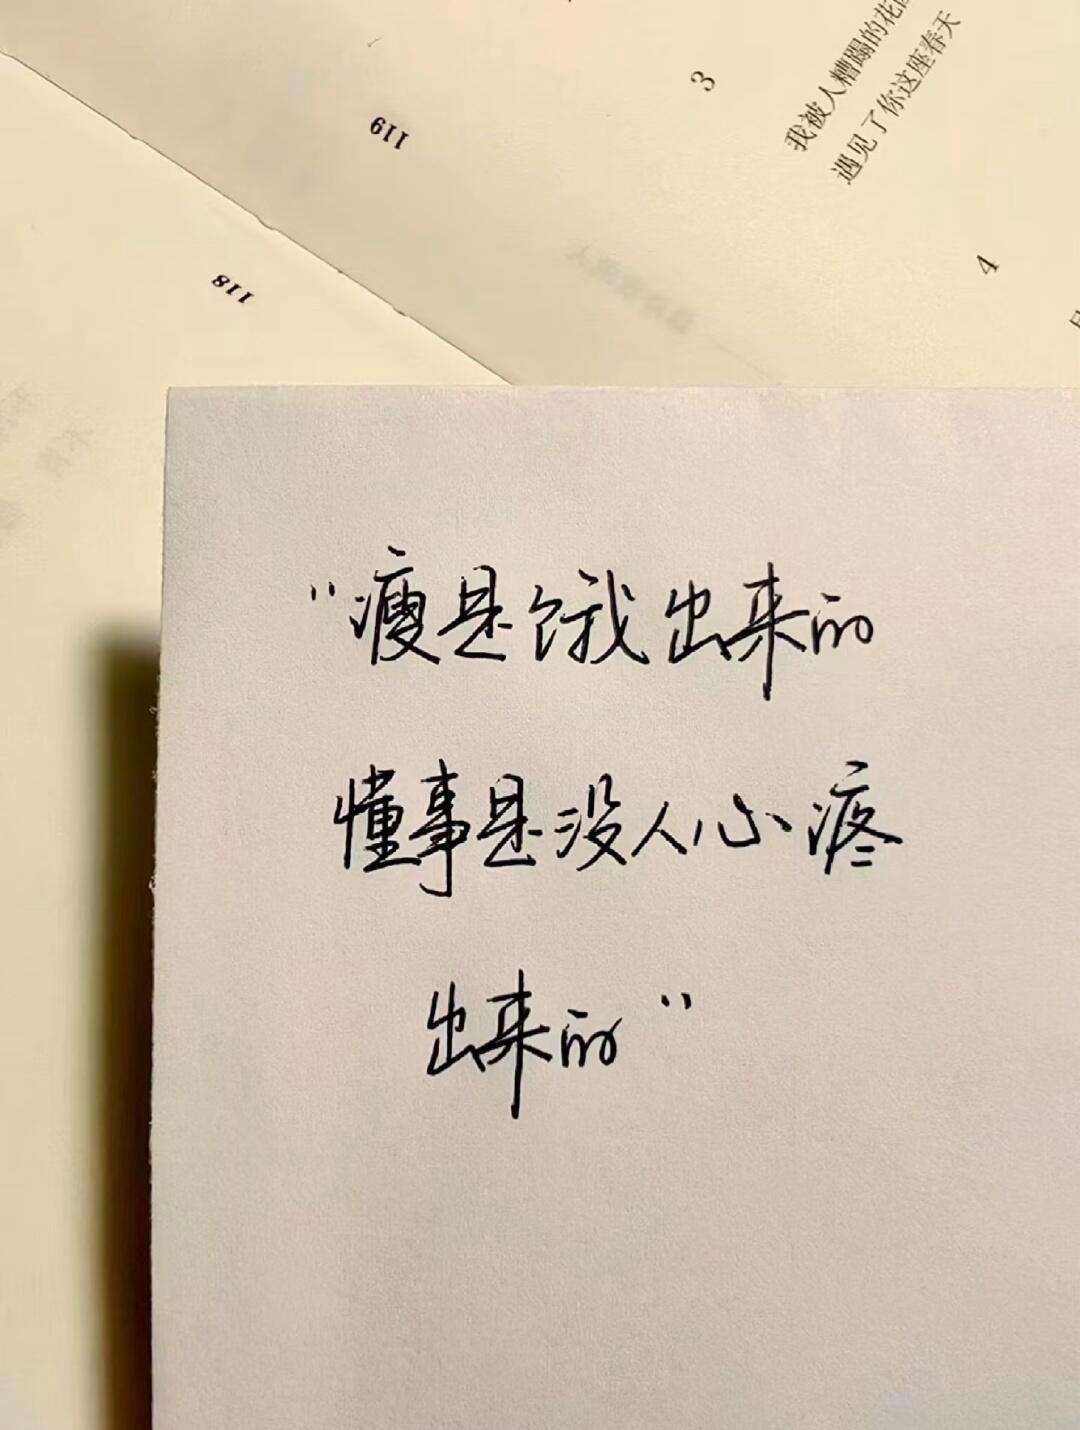 3
我被人糟蹋的花
遇见了你这座春天
119
4
118
"瘦是饿出来的
懂事是没人心疼
出来的"